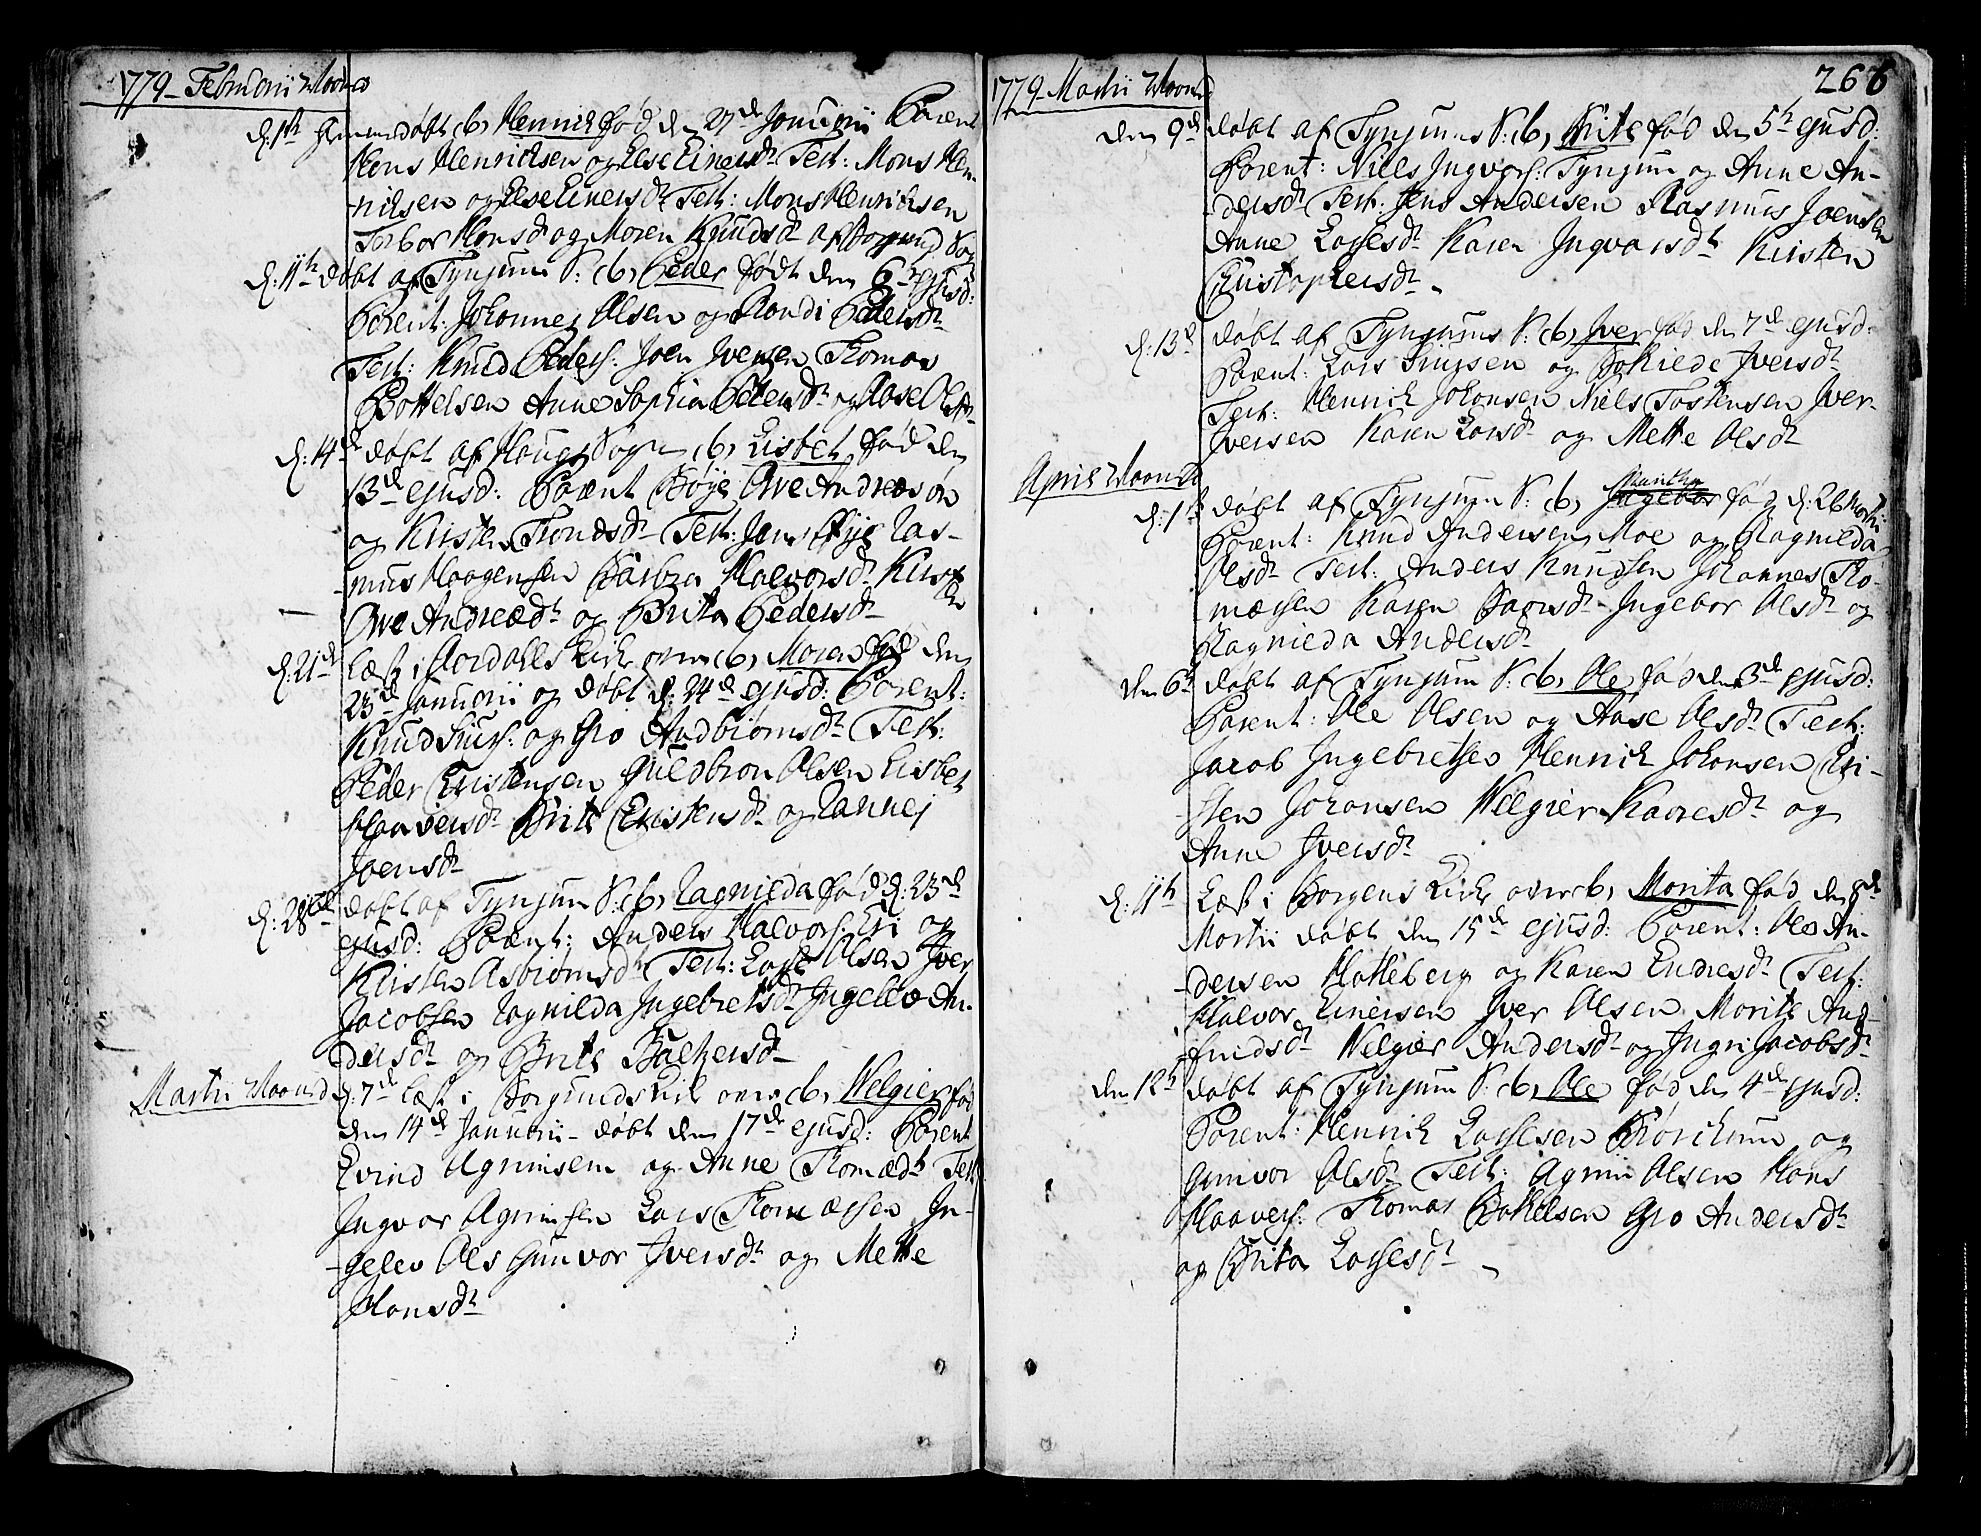 1779 - Februarii Maaned
d: 1ste hiemmedøbt cb, Henrich fød den 27de Januarii Parent
Hans Henrichsen og Else Einersdt Test: Mons Hen-
-richsen og Else Einersdt Test: Mons Henrichsen
Torbor Hansdt og Maren Knudsdt af Borgund Sogn
d: 11te døbt af Tynjum S: cb, Peder født den 6te ejusd:
Parent: Johannes Olsen og Randi Pedersdt
Test: Knud Peders: Joen Iversen Thomas
Bottelsen Anne Sophia Petersdt og Aase Olsdt
d: 14de døbt af Houges Sogn cb, Lisbet fød den
13de ejusd: Parent Bøye Ove Andreasøn
og Kirsten Trondsdt Test: Jens Bøye Ras-
mus Haagensen Barbra Halvorsdt Kirsten
Ove Andreædt og Brita Pedersdt
d: 21de læst i Aardals Kirke over cb, Maren fød den
23de Januarii og døbt d: 24de ejusd: Parent:
Knud Siurs: og Gro Andbiørnsdt Test:
Peder Christensen Guldbron Olsen Lisbet
Haaversdt Brite Christensdt og Rannei
Joensdt
d: 28de døbt af Tynjum S: cb, Ragnilda fød d: 23de
ejusd: Parent: Anders Halvors: Eri og
Kirsten Asbiørnsdt Test: Lasse Olsen Iver
Jacobsen Ragnilda Ingebretsdt Ingelev An-
dersdt og Brite Botolfersdt
Martii Maaned d: 7de læst i Borgunds Kirk over cb, Helgier fød
den 14de Januarii - døbt den 17de ejusd: Parent
Evind Agrimsen og Anne Thomædt Test
Ingvor Agrimsen Lars Thomæssen In-
-gelev Ols Gunvor Iversdt og Mette
Hansdt
1779 - Martii Maaned
266
den 9de døbt af Tynjums S: cb, Brite fød den 5te ejusd:
Parent: Niels Ingvors: Tynjum og Anne An-
-dersdt Test: Jens Andersen Rasmus Joensen
Anne Lassesdt Karen Ingvarsdt Kirsten
Christophersdt
d: 13de døbt af Tynjums S: cb, Iver fød den 7de ejusd:
Parent: Lars Siursen og Botilede Iversdt
Test: Henrich Johansen Niels Tostensen Iver
Iversen Karen Larsdt og Mette Olsdt
April Maaned
d: 1te døbt af Tynjum S: cb, Ingebor fød d: 26 Martii
Parent: Knud Andersen Moe og Ragnilda
Olsdt Test: Anders Knudsen Johannes Tho-
mæsen Karen Larsdt Ingebor Olsdt og
Ragnilda Andersdt
den 6te døbt af Tynjum S: cb, Ole fød den 3de ejusd:
Parent: Ole Olsen og Aase Olsdt Test:
Jacob Ingebretsen Henrich Johansen Chri-
-sten Johansen Helgier Kaaresdt og
Anne Iversdt
d: 11te Læst i Borgens Kirke over cb, Marita fød den 8de
Martii døbt den 15de ejusd: Parent: Ole An-
-dersen Hatleberg og Karen Endresdt Test:
Halvor Einersen Iver Olsen Marite And-
-findsdt Helgier Andersdt og Ingri Jacobsdt
den 12te døbt af Tynjum S: cb, Ole fød den 4de ejusd:
Parent: Henrich Lassesen Børchum og
Gunvor Olsdt Test: Agrim Olsen Hans
Haavers: Thomas Botelsen Gro Andersdt
og Brita Lassesdt